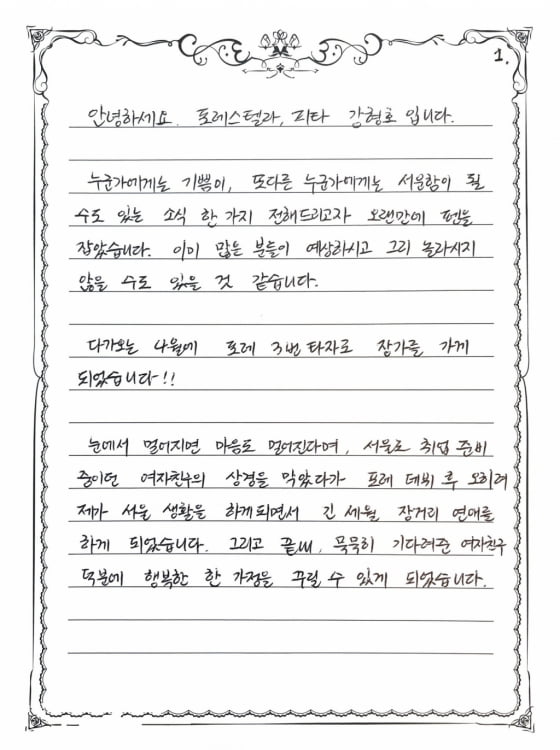 1.
안녕하세요. 포레스텔라, 피타 강형호 입니다.
누군가에게는 기쁨이, 또다른 누군가에게는 서운함이 될
수도 있는 소식 한 가지 전해드리고자 오랜만에 펜을
잡았습니다. 이미 많은 분들이 예상하시고 그리 놀라시지
않을 수도 있을 것 같습니다.
다가오는 4월에 포레 3번 타자로 장가를 가게
되었습니다!!
눈에서 멀어지면 마음도 멀어진다며, 서울로 취업 준비
중이던 여자친구의 상경을 막았다가 포레 데뷔 후 오히려
제가 서울 생활을 하게되면서 긴 세월 장거리 연애를
하게 되었습니다. 그리고 끝내, 묵묵히 기다려준 여자친구
덕분에 행복한 한 가정을 꾸릴 수 있게 되었습니다.